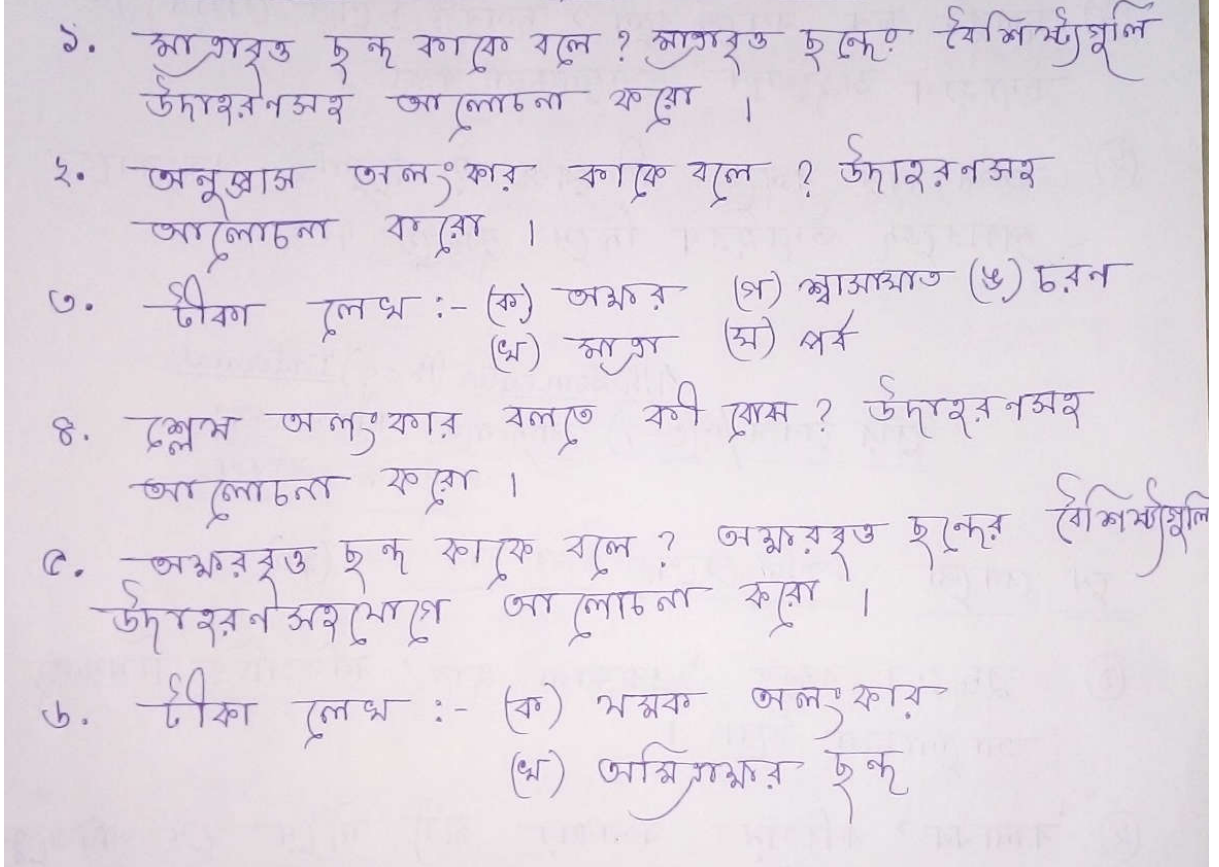 ১. মাত্রাবৃত্ত ছন্দ কাকে বলে ? মাত্রাবৃত্ত ছন্দের বৈশিষ্ট্যগুলি
উদাহরনসহ আলোচনা করো ।
২. অনুপ্রাস অলংকার কাকে বলে ? উদাহরনসহ
আলোচনা করো ।
৩. টীকা লেখ :- (ক) অক্ষর (গ) শ্বাসাঘাত (ঙ) চরন
(খ) মাত্রা (ঘ) পর্ব
৪. শ্লেষ অলংকার বলতে কী বোঝ ? উদাহরনসহ
আলোচনা করো ।
৫. অক্ষরবৃত্ত ছন্দ কাকে বলে ? অক্ষরবৃত্ত ছন্দের বৈশিষ্ট্যগুলি
উদাহরনসহযোগে আলোচনা করো ।
৬. টীকা লেখ :- (ক) যমক অলংকার
(খ) অমিত্রাক্ষর ছন্দ